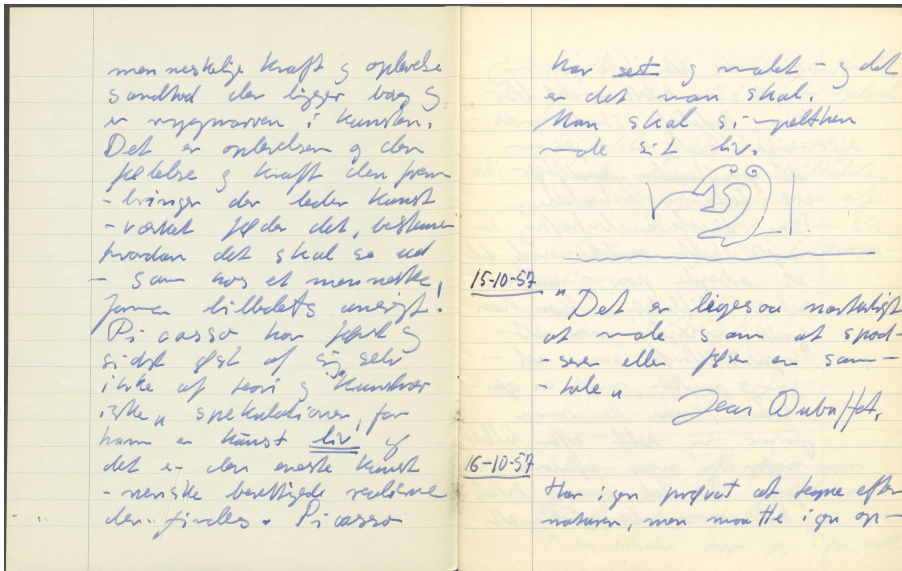 menneskelige kraft og oplevelse
sandhed der ligger bag og
er rygmarven i kunsten.
Det er oplevelsen og den
følelse og kraft den frem
-bringer der leder kunst
-værket føder det, bestemmer
hvordan det skal se ud
- som hos et menneske,
former billedets ansigt!
Picasso har først og
sidst øst af sig selv
ikke af teori og "kunstner
iske" spekulationer, for
ham er kunst liv og
det er den eneste kunst
-neriske berettigede realisme
der findes. Picasso
har set og malet - og det
er det man skal.
Man skal simpelthen
male sit liv.
15-10-57
"Det er ligesaa naturligt
at male som at spad-
-sere eller føre en sam-
-tale"
Jean Dubuffet.
16-10-57
Har igen prøvet at tegne efter
naturen, men maatte igen op-